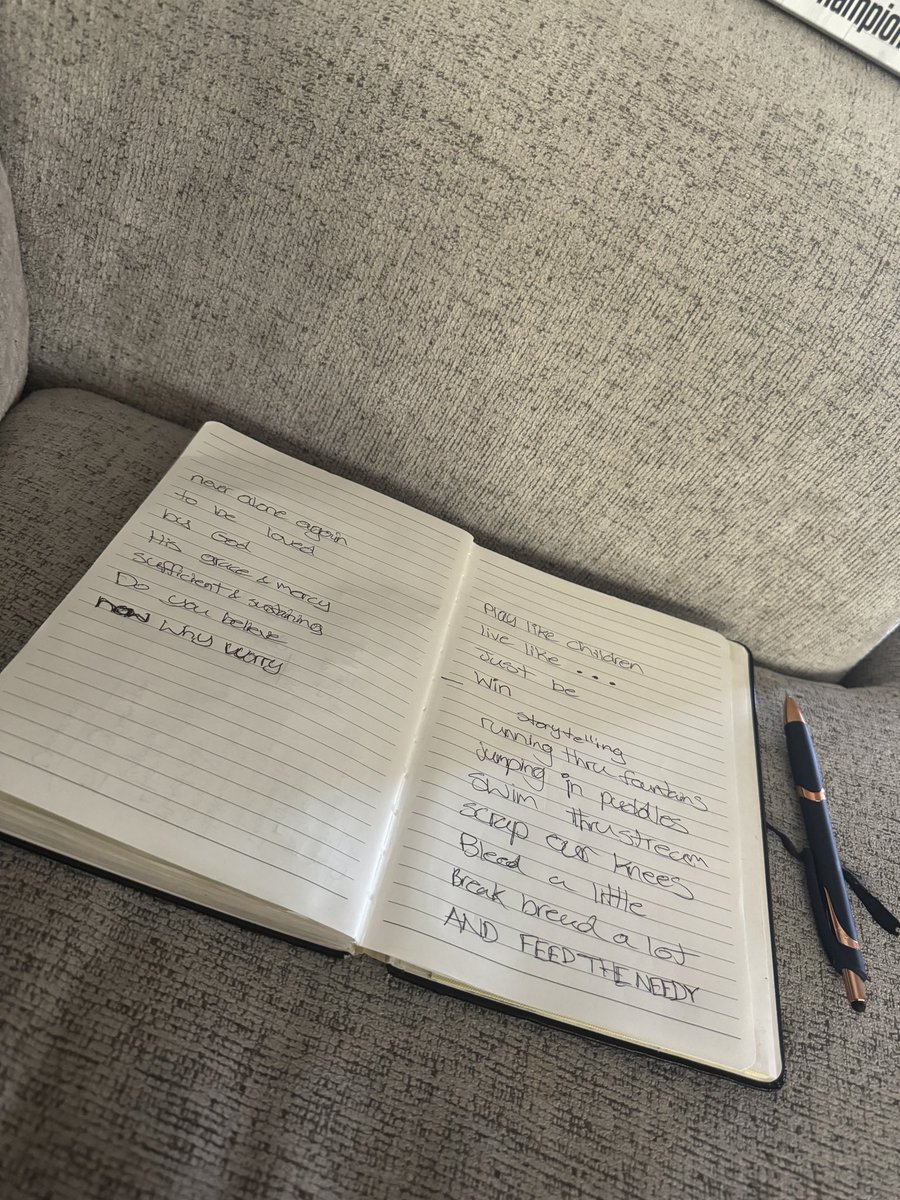 hampion
never alone again
to be loved
by God
His grace & mercy
sufficient & sustaining
Do you believe
now why worry
play like children
live like ...
Just be
— Win
storytelling
running thru fountains
jumping in puddles
Swim thru stream
scrap our knees
Bleed a little
Break bread a lot
AND FEED THE NEEDY